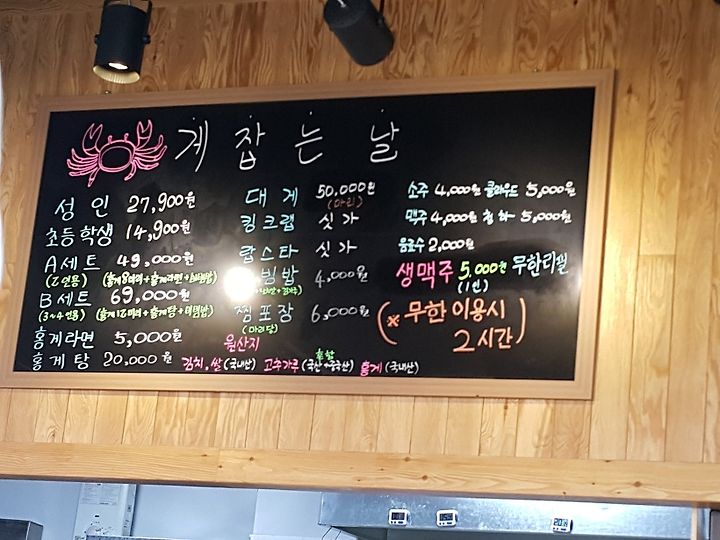 게 잡 는 날
성인 27,900원
초등학생 14,900원
A세트 49,000원
(2인용) (홍게8마리+홍게라면+비빔밥)
B세트 69,000원
(3~4인용) (홍게12마리+홍게탕+비빔밥)
홍게라면 5,000원
홍게탕 20,000원
대게 50,000원
(마리)
킹크랩 싯가
랍스타 싯가
빔밥 4,000원
찜포장 6,000원
(마리당)
소주 4,000원 클라우드 5,000원
맥주 4,000원 청하 5,000원
음료수 2,000원
생맥주 5,000원 무한리필
(1인)
(※ 무한 이용시
2시간)
원산지
김치,쌀(국내산) 고추가루(국산+중국산)혼합 홍게(국내산)